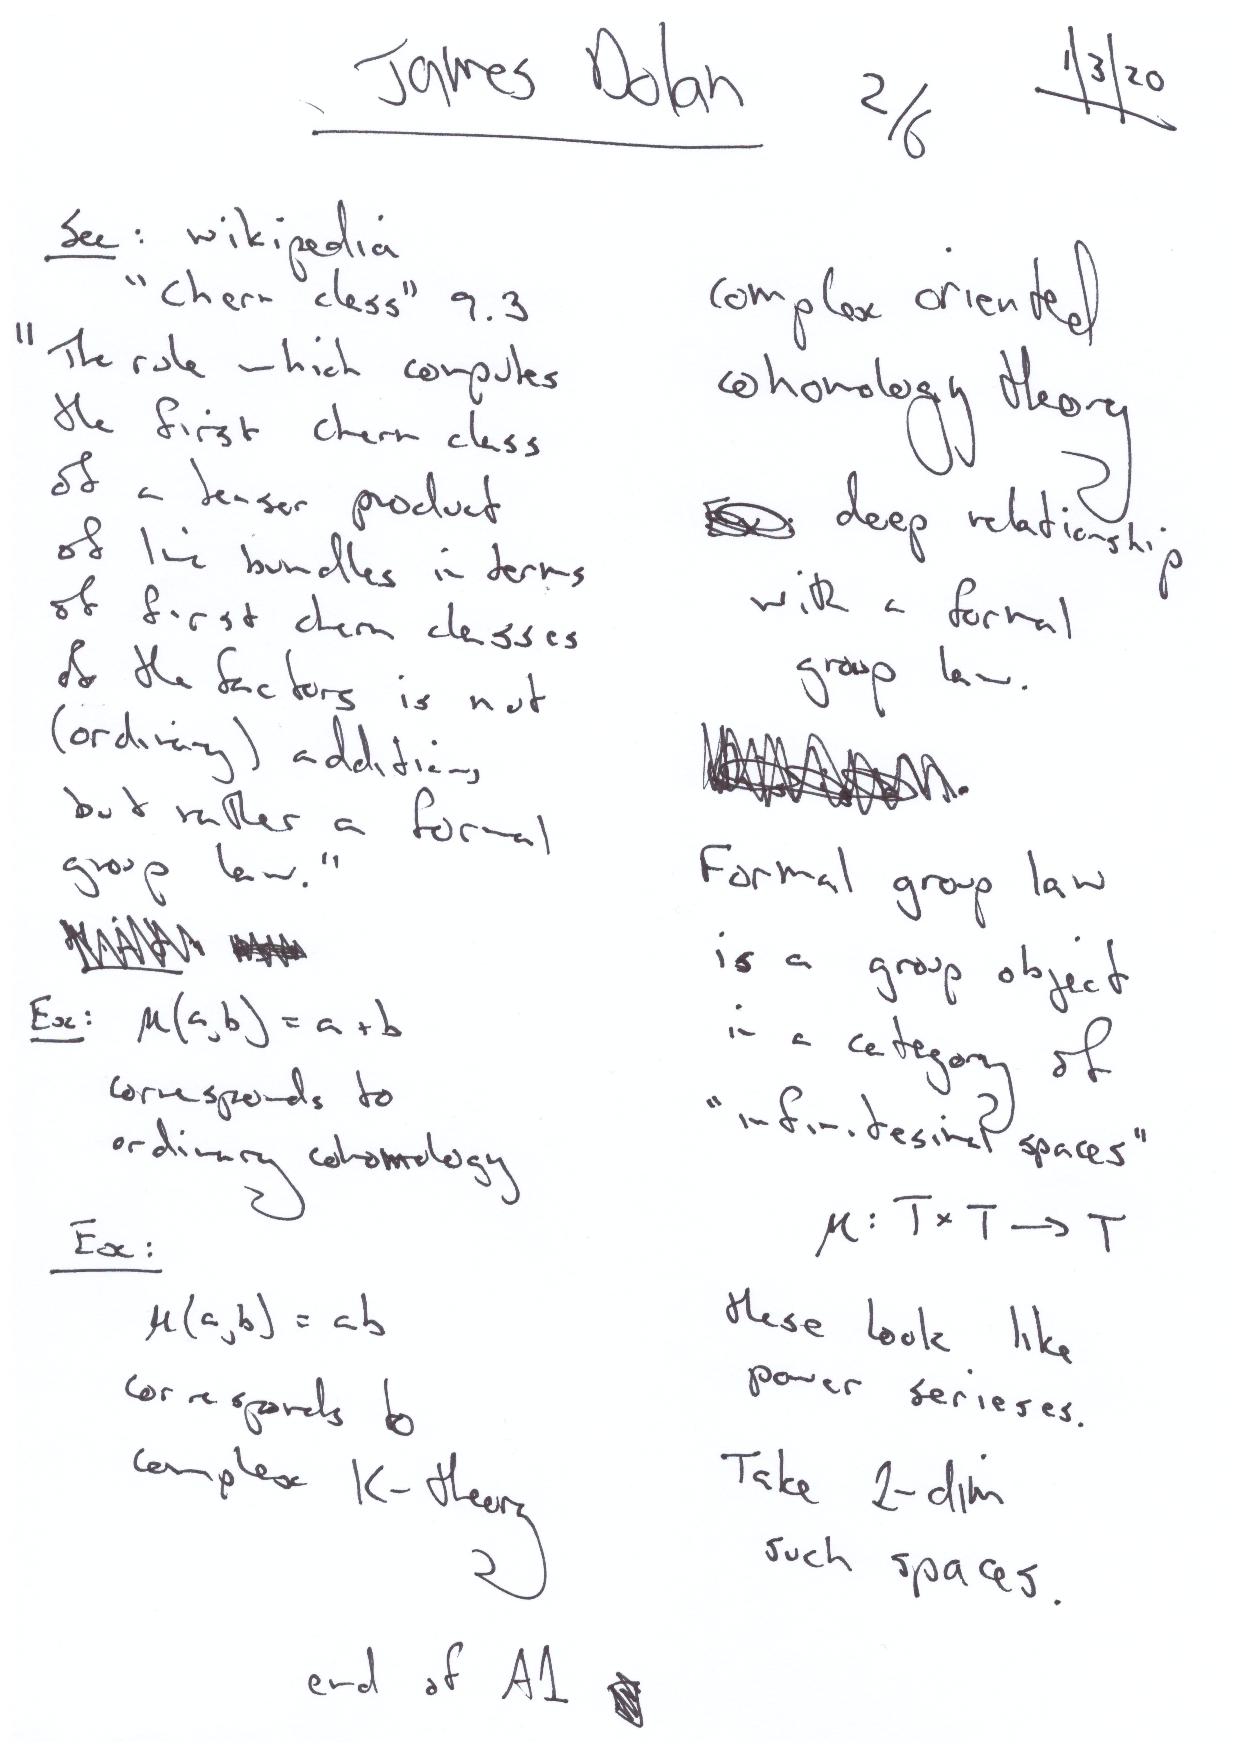 James Dolan 2/6 1/3/20
See: wikipedia
"Chern class" 9.3
"The rule which computes
the first chern class
of a tensor product
of line bundles in terms
of first chern classes
of the factors is not
(ordinary) addition,
but rather a formal
group law."
Ex: μ(a,b) = a + b
corresponds to
ordinary cohomology
Ex:
μ(a,b) = ab
corresponds to
complex K-theory
complex oriented
cohomology theory
deep relationship
with a formal
group law.
Formal group law
is a group object
in a category of
"infinitesimal spaces"
μ: T × T → T
these look like
power serieses.
Take 2-dim
such spaces.
end of A1